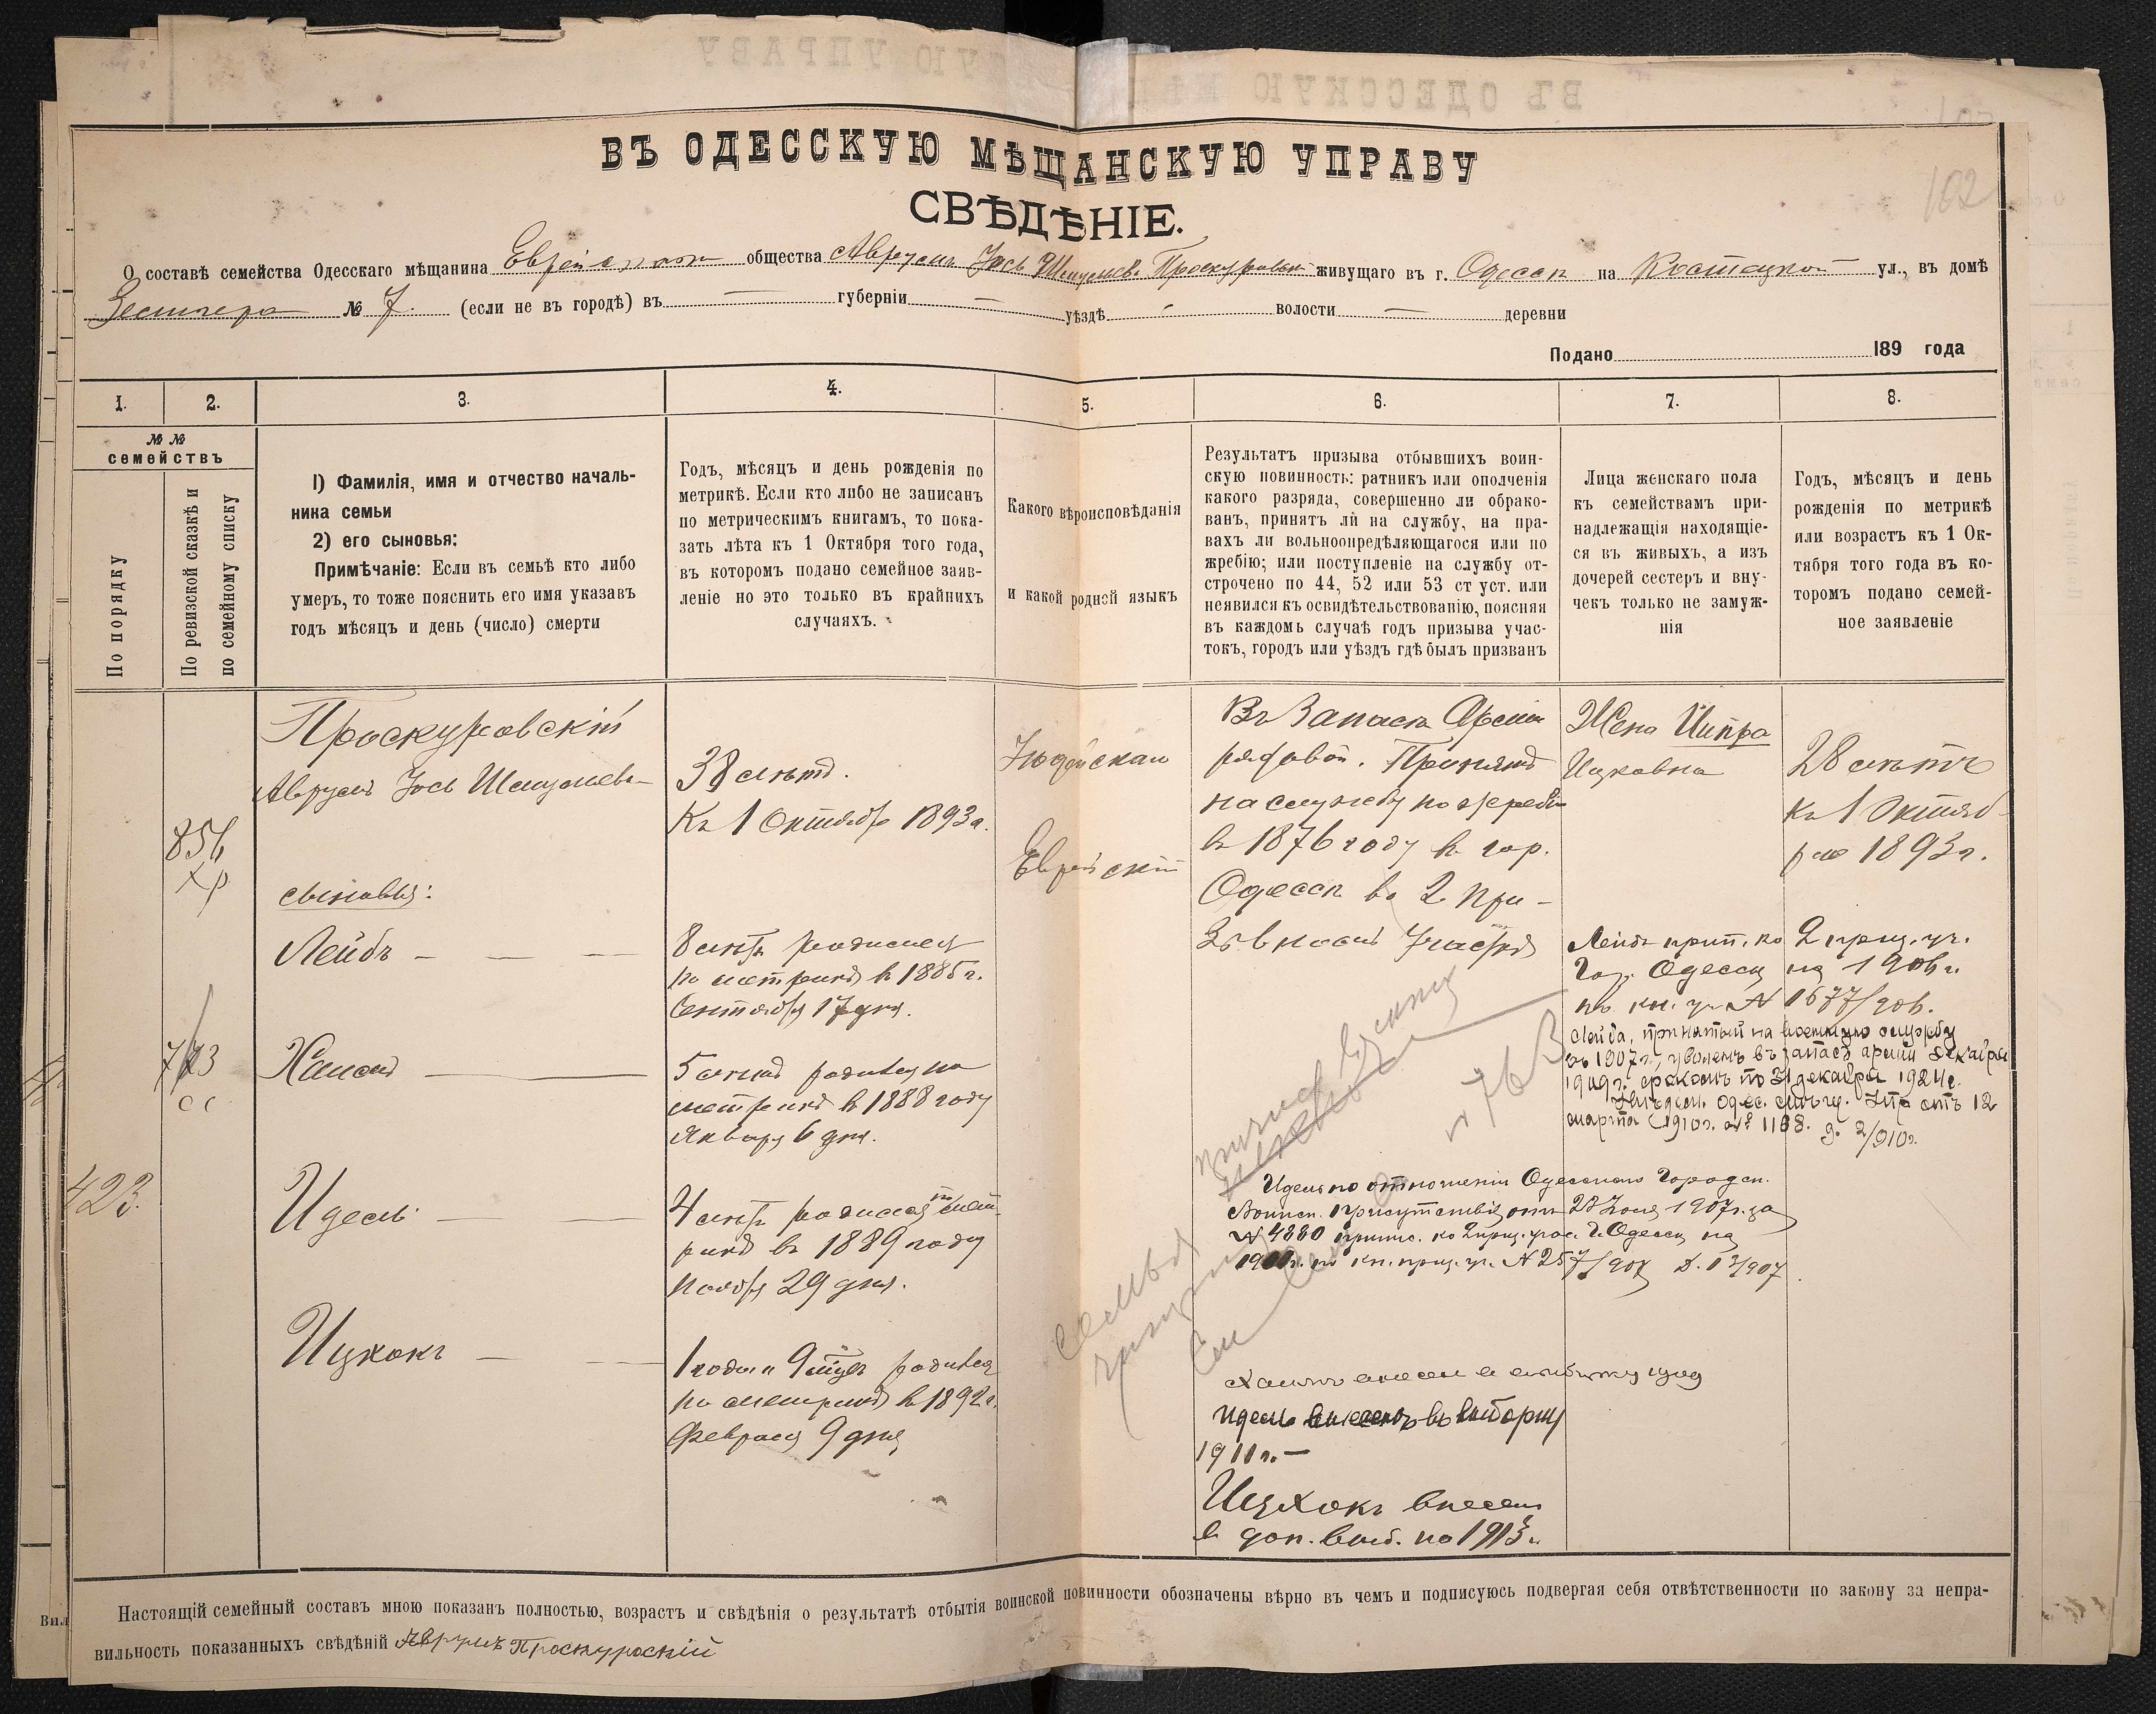 ВЪ ОДЕССКУЮ МѢЩАНСКУЮ УПРАВУ
СВѢДѢНІЕ.
О составѣ семейства Одесскаго мѣщанина Еврейскаго общества Аврумъ Іось Шмулевъ Проскуровскій живущаго въ г. Одессѣ на Костецкой ул., въ домѣ
№ 7. (если не въ городѣ) въ — губерніи — уѣздѣ - волости — деревни
Подано 189 года
1. 2. 3. 4. 5. 6. 7. 8.
№ №
семействъ
По порядку
По ревизской сказкѣ и
по семейному списку
1) Фамилія, имя и отчество началь-
ника семьи
2) его сыновья:
Примѣчаніе: Если въ семьѣ кто либо
умеръ, то тоже пояснить его имя указавъ
годъ мѣсяцъ и день (число) смерти
Годъ, мѣсяцъ и день рожденія по
метрикѣ. Если кто либо не записанъ
по метрическимъ книгамъ, то пока-
зать лѣта къ 1 Октября того года,
въ которомъ подано семейное заяв-
леніе но это только въ крайнихъ
случаяхъ.
Какого вѣроисповѣданія
и какой родной языкъ
Результатъ призыва отбывшихъ воин-
скую повинность: ратникъ или ополченія
какого разряда, совершенно ли обрако-
ванъ, принятъ ли на службу, на пра-
вахъ ли вольноопредѣляющагося или по
жребію; или поступленіе на службу от-
строчено по 44, 52 или 53 ст уст. или
неявился къ освидѣтельствованію, поясняя
въ каждомъ случаѣ годъ призыва учас-
токъ, городъ или уѣздъ гдѣ былъ призванъ
Лица женскаго пола
къ семействамъ при-
надлежащія находящіе-
ся въ живыхъ, а изъ
дочерей сестеръ и вну-
чекъ только не замуж-
нія
Годъ, мѣсяцъ и день
рожденія по метрикѣ
или возрастъ къ 1 Ок-
тября того года въ ко-
торомъ подано семей-
ное заявленіе
Проскуровскій
Аврумъ Іось Шмулевъ
сыновья:
Лейбъ — — —
Хаимъ —
Идель — —
Ицкокъ — —
423.
38 лѣтъ.
Къ 1 Октября 1893 г.
8 лѣтъ родился
по метрикѣ в 1885 г.
Сентября 17 дня.
5 лѣтъ родился по
метрикѣ в 1888 году
Января 6 дня.
4 лѣтъ родился по мет-
рикѣ въ 1889 году
Ноября 29 дня.
1 годъ и 9 мѣсяц. родился
по метрикѣ в 1892 г.
Февраля 9 дня
Іюдейская
Еврейскій
Въ Запасѣ Арміи
рядовой. Принятъ
на службу по жребію
в 1876 году в гор.
Одессѣ во 2 При-
зывномъ Участкѣ
Жена Ципра
Ицковна
28 лѣтъ
къ 1 Октяб-
ря 1893 г.
Лейбъ прип. ко 2 приз. уч.
Гор. Одессы на 1906 г.
по кн. уч. № 1677/906.
Лейба, принятый на военную службу
въ 1907 г., уволенъ въ запасъ арміи декабря
1909 г. срокомъ по 31 декабря 1924 г.
марта 1910 г. № 1168.
№ 763
Идель по отношенію Одесскаго Городск.
Воинск. присутствія отъ 23 Іюня 1907 г. за
№ 4880 припис. ко 2 приз. учас. г. Одессы на
по кн. приз. уч. № 257/907
Идель внесенъ въ выборку
1911 г. —
Ицхокъ внесен
в доп. выб. на 1913 г.
Настоящій семейный составъ мною показанъ полностью, возрастъ и свѣдѣнія о результатѣ отбытія воинской повинности обозначены вѣрно въ чемъ и подписуюсь подвергая себя отвѣтственности по закону за непра-
вильность показанныхъ свѣдѣній Аврумъ Проскуроскій